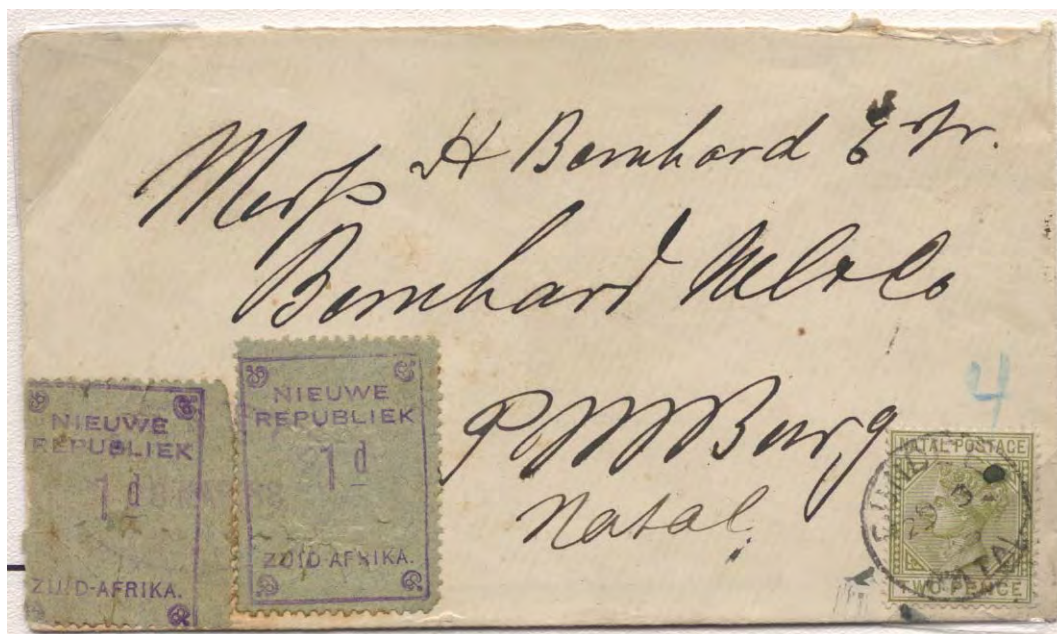 Messrs H Bernhard &
Bernhard
4
PMBurg
Natal
NIEUWE
REPUBLIEK
1d
ZUID-AFRIKA.
NIEUWE
REPUBLIEK
1d
ZUID-AFRIKA.
NATAL POSTAGE
TWO PENCE
NATAL